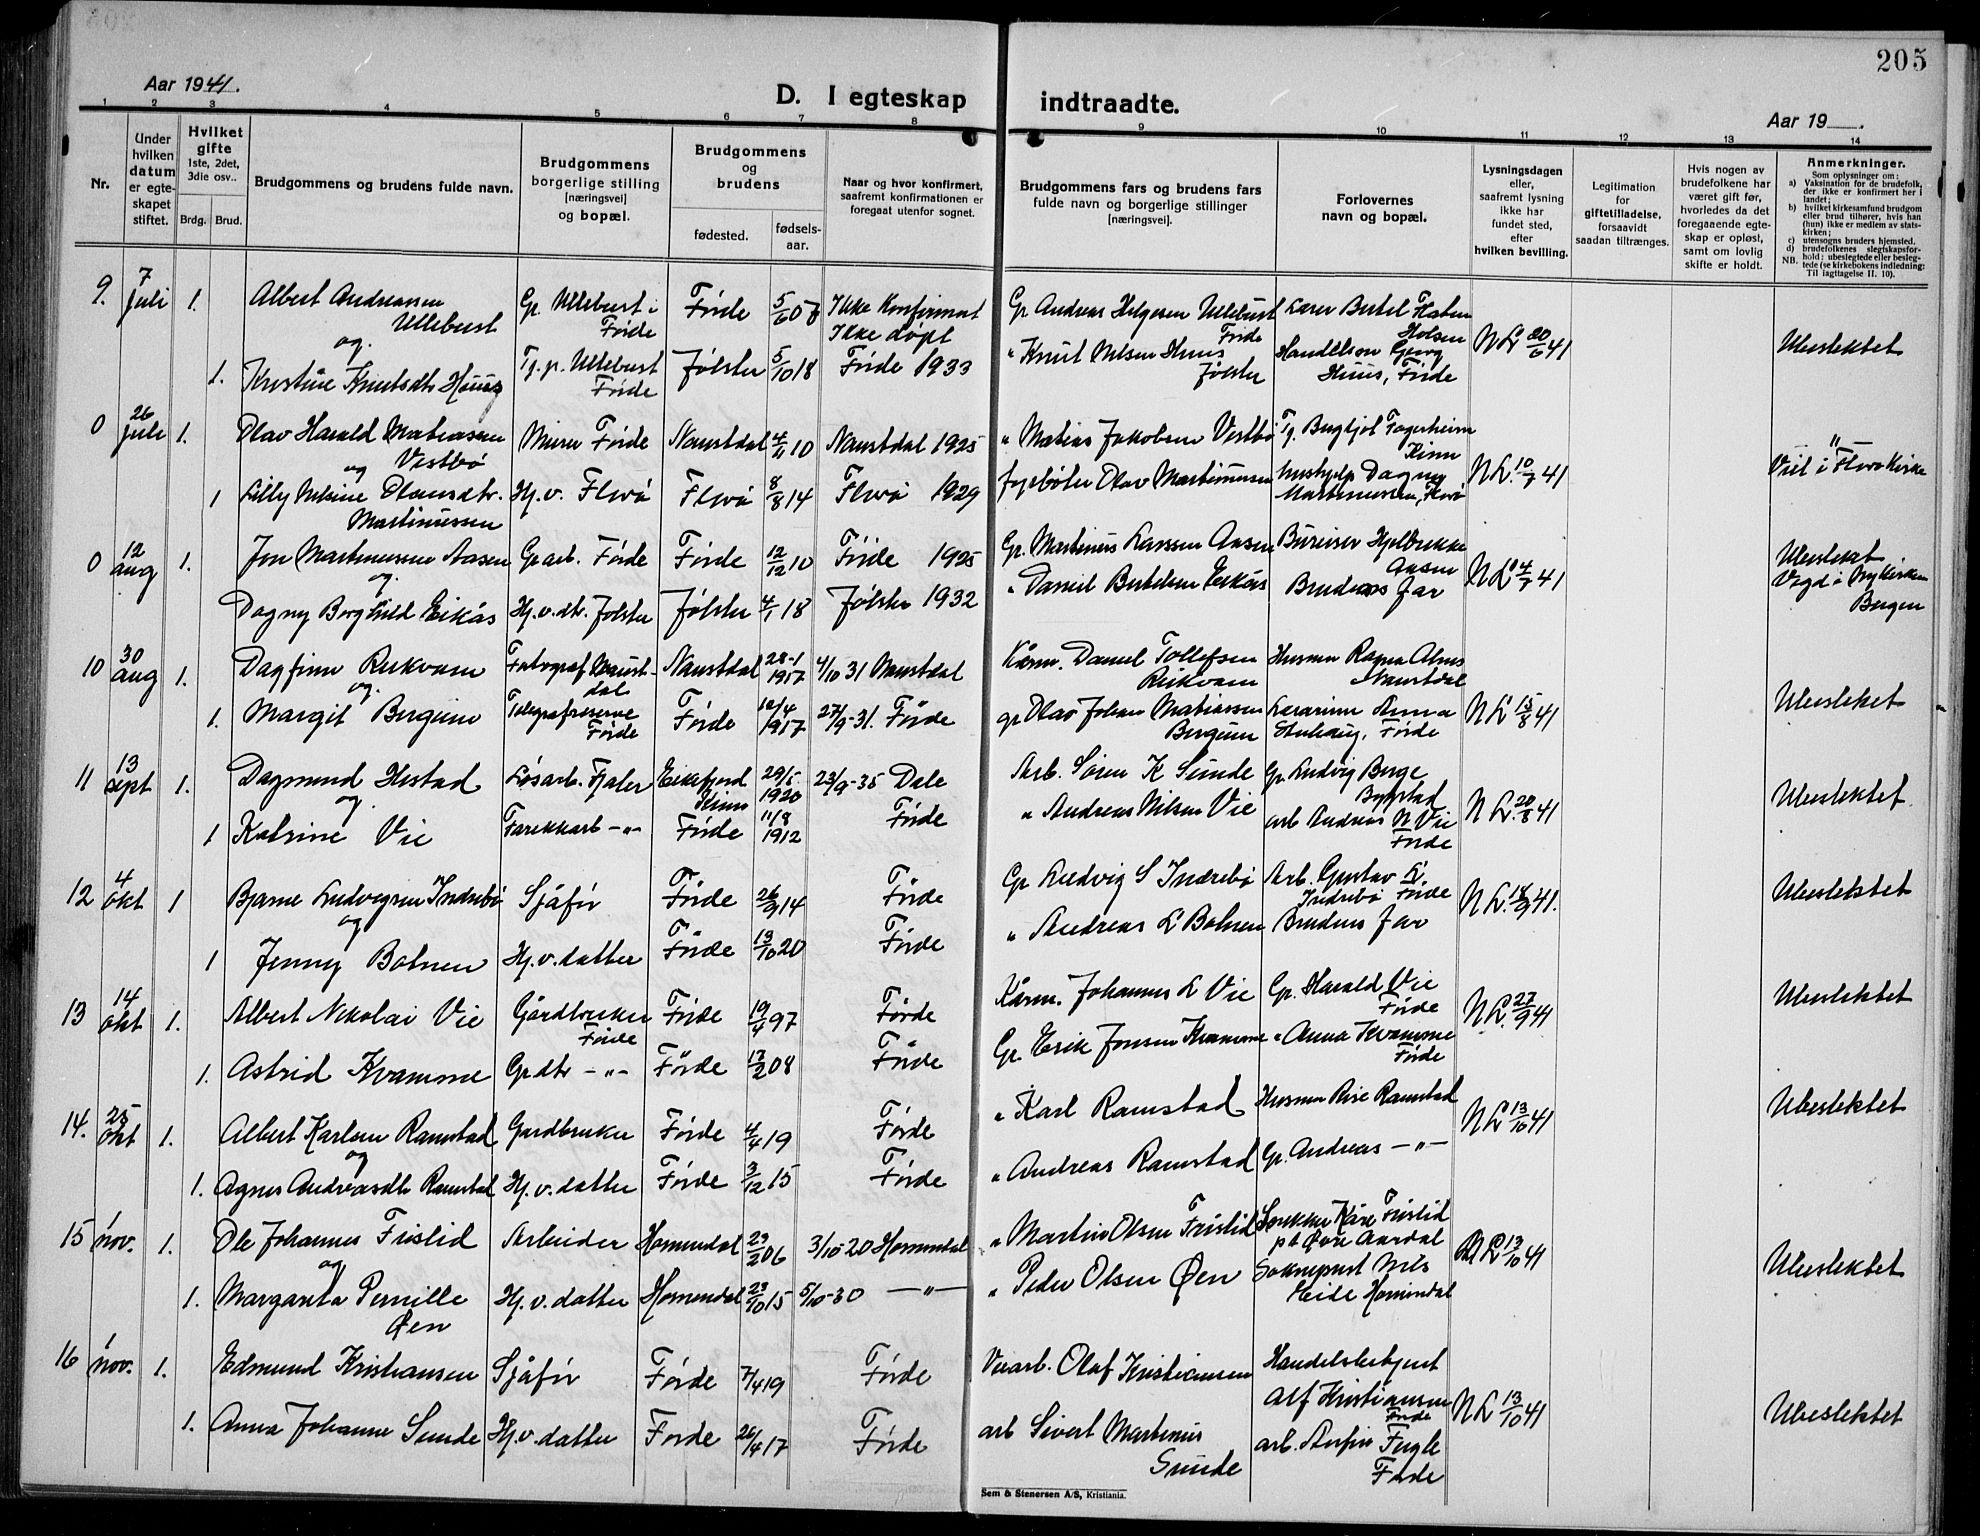 205
Aar 1941.
D. I egteskap indtraadte.
Aar 19 .
1 2 3 4 5 6 7 8 9 10 11 12 13 14
Nr.
Under hvilken datum er egte-skapet stiftet.
Hvilket gifte 1ste, 2det, 3die osv..
Brdg. Brud.
Brudgommens og brudens fulde navn.
Brudgommens borgerlige stilling [næringsvei] og bopæl.
Brudgommens og brudens
fødested. fødsels-aar.
Naar og hvor konfirmert, saafremt konfirmationen er foregaat utenfor sognet.
Brudgommens fars og brudens fars fulde navn og borgerlige stillinger [næringsvei].
Forlovernes navn og bopæl.
Lysningsdagen eller, saafremt lysning ikke har fundet sted, efter hvilken bevilling.
Legitimation for giftetilladelse, forsaavidt saadan tiltrænges.
Hvis nogen av brudefolkene har været gift før, hvorledes da det foregaaende egte-skap er opløst, samt om lovlig skifte er holdt.
Anmerkninger.
Som oplysninger om:
a) Vaksination for de brudefolk, der ikke er konfirmert her i landet;
b) hvilket kirkesamfund brudgom eller brud tilhører, hvis han (hun) ikke er medlem av stats-kirken;
c) utensogns bruders hjemsted.
d) brudefolkenes slegtskapsfor-hold: ubeslegtede eller besleg-tede (se kirkebokens indledning:
NB. Til iagttagelse II. 10).
9. 7 juli 1. Albert Andreassen Ullebust Gr. Ullebust i Førde Førde 5/6 07 Ikke Konfirmert Ikke døpt Gr Andreas Helgesen Ullebust Førde Lærer Bertel Flaten Holsen N L 20/6 41 Ubeslektet
og
1. Kristine Knutsdtr Huus Tj.p. Ullebust Førde Jølster 5/10 18 Førde 1933 " Knut Nilsen Huus Jølster Handelsm Georg Huus, Førde
0 26 juli 1. Olav Harald Matiassen Vestbø Murer Førde Naustdal 4/11 10 Naustdal 1925 " Matias Jakobsen Vestbø Tj. Bergljot Fagerheim Kinn N L. 10/7 41 " Viet i Florø Kirke
og
1 Lilly Nelsine Olavsdtr. Martinussen Hj.v. Florø Florø 8/8 14 Florø 1929 Olav Martinussen hushjelp Dagny Martinussen, Florø
0 12 aug 1. Jon Martinussen Aasen Gr arb. Førde Førde 12/12 10 Førde 1925 Gr. Martinus Larssen Aasen Bureiser Hjelbrekke Aasen N L 4/7 41 Ubeslekt Vigd i Nykirken Bergen
og
Dagny Borghild Eikås Hj.v.dtr. Jølster Jølster 4/1 18 Jølster 1932 " Daniel Bertelsen Eikås Brudens far
10 30 aug 1. Dagfinn Reikvam Fotograf Naustdal Naustdal 28-1 1917 4/10 31 Naustdal Kårm. Daniel Tollefsen Reikvam Husmor Ragna Alnes Naustdal
og
1. Margit Bergum Telegrafreserve Førde Førde 10/4 1917 27/9-31. Førde gr Olav Johan Matiassen Bergum Lærarinne Anna Stubhaug, Førde N L 15/8 41 Ubeslektet
11 13 sept 1. Dagmund Hestad Løsarb. Fjaler Eikefjord Kinn 29/5 1920 23/9-35 Dale Arb. Søren K Sunde Gr Ludvig Berge Bygstad
og
1 Katrine Vie Fabrikkarb -"- Førde 11/8 1912 Førde " Andreas Nilsen Vie arb Andreas N Vie Førde N L. 20/8 41 Ubeslektet
12 4 okt 1 Bjarne Ludvigsen Indrebø Sjåfør Førde 26/9 14 Førde Gr Ludvig S Indrebø Arb. Gustav L. Indrebø Førde N L. 18/9 41. Ubeslektet
og
1 Jenny Bolsen Hj.v.datter Førde 13/10 20 Førde " Andreas L Bolsen Brudens far
13 14 okt 1. Albert Nikolai Vie Gårdbruker Førde Førde 19/4 97 Førde Kårm. Johannes L Vie Gr. Harald Vie Førde N L. 27/9 41 Ubeslektet
1. Astrid Kvamme Gr dtr -"- Førde 17/2 08 Førde Gr. Erik Jonsen Kvamme " Anna Kvamme Førde
14. 25 okt 1. Albert Karlsen Ramstad Gardbruker Førde 4/4 19 Førde " Karl Ramstad Husmor Ramstad N L 13/10 41 Ubeslektet
og
1. Agnes Andreasdtr Ramstad Hj.v.datter Førde 3/12 15 Førde " Andreas Ramstad Gr. Andreas -"-
15 1 nov. 1. Ole Johannes Frislid Arbeider Hornindal 23/2 06 3/10-20 Hornindal " Martin Olsen Frislid Snekker Kåre Frislid pt Øvre Aardal N L 13/10 41 Ubeslektet
og
1. Margareta Pernille Øen Hj.v.datter Hornindal 23/10 15 5/10-30 -"- " Peder Olsen Øen Sokneprest Nils Heide Hornindal
16 1 nov. 1. Edmund Kristiansen Sjåfør Førde 7/4 19 Førde Veiarb. Olaf Kristiansen Handelsbetjent Alf Kristiansen Førde N L 13/10 41 Ubeslektet
1. Anna Johanne Sunde Hj.v.datter Førde 26/4 17 Førde arb Sivert Martinus Sunde arb. Fugle Førde
Sem & Stenersen A/S, Kristiania.